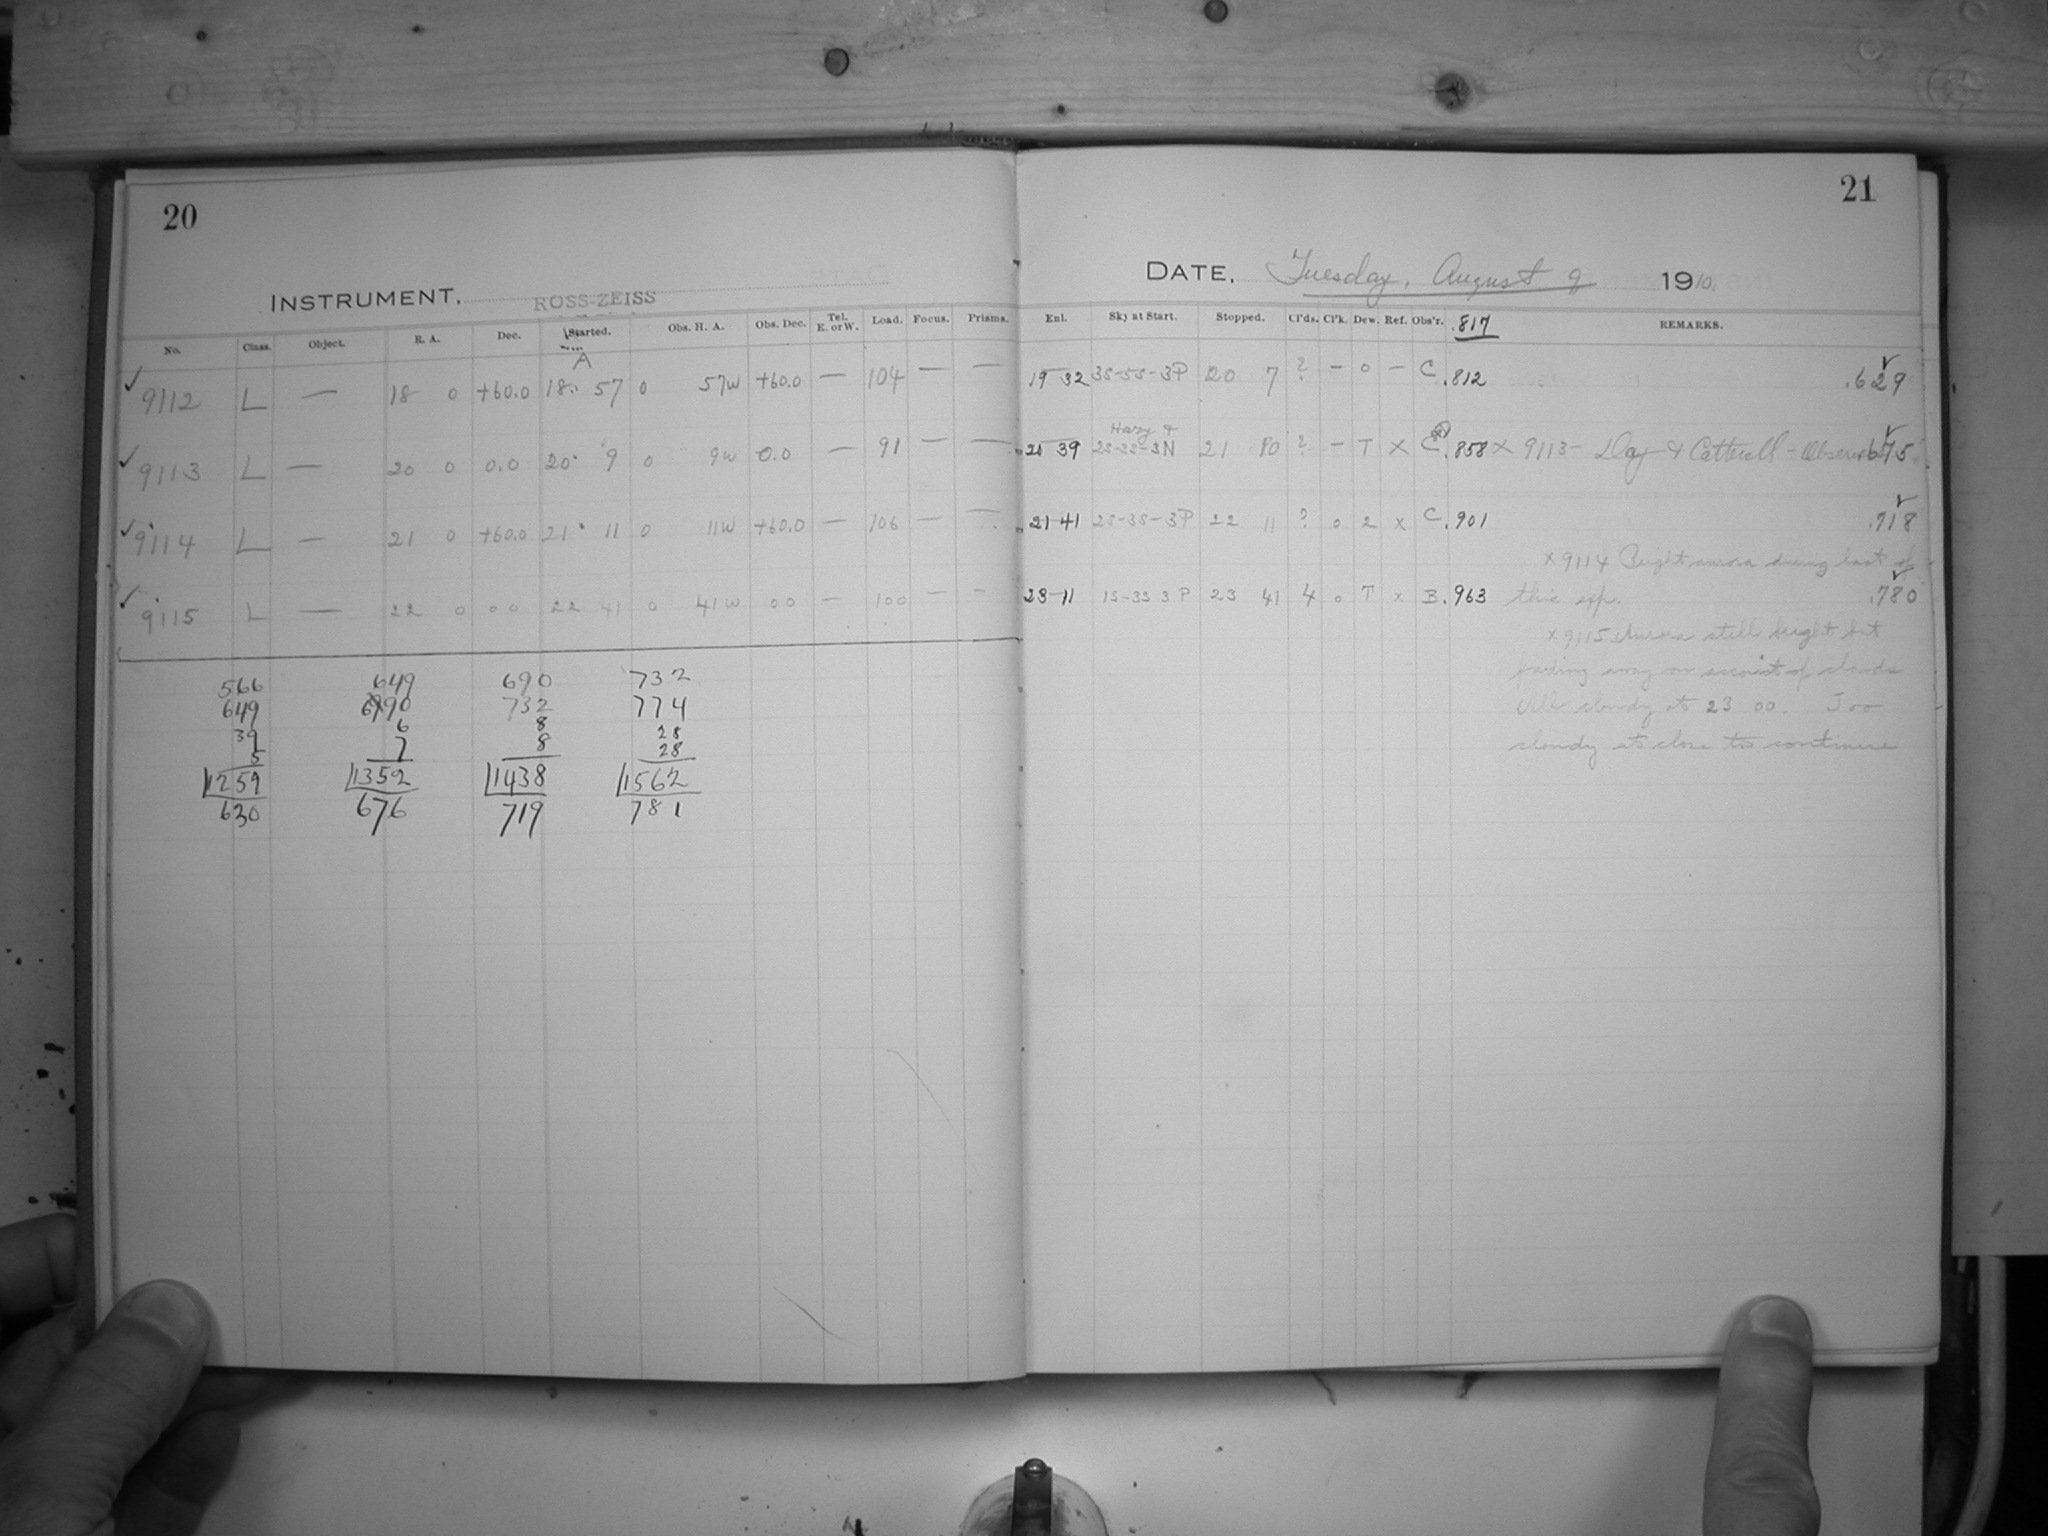 20
INSTRUMENT. ROSS-ZEISS
No. Class. Object. R. A. Dec. Started. Obs. H. A. Obs. Dec. Tel. E. or W. Load. Focus. Prisms.
A
✓ 9112 L — 18 0 +60.0 18 57 0 57W +60.0 — 104 — —
✓ 9113 L — 20 0 0.0 20 9 0 9W 0.0 — 91 — —
✓ 9114 L — 21 0 +60.0 21 11 0 11W +60.0 — 106 — —
✓ 9115 L — 22 0 00 22 41 0 41W 00 — 100 — —
566 649 690 732
649 690 732 774
39 6 8 28
5 7 8 28
1259 1352 1438 1562
630 676 719 781
21
DATE. Tuesday, August 9 1910.
Enl. Sky at Start. Stopped. Cl'ds. Cl'k. Dew. Ref. Obs'r. .817 REMARKS.
19 32 3S-5S-3P 20 7 ? — 0 — C .812 .629 ✓
Hazy +
39 2S-3S-3N 21 ? — T X C .858 X 9113 - Day & Cattell - Observers .675
21 41 2S-3S-3P 22 11 ? 0 2 X C .901 .718 ✓
X 9114 Bright aurora during last of
23 11 1S-3S 3P 23 41 4 0 T X B .963 this exp. .780 ✓
X 9115 Aurora still bright but
fading away on account of clouds
All cloudy at 23 00. Too
cloudy at close to continue